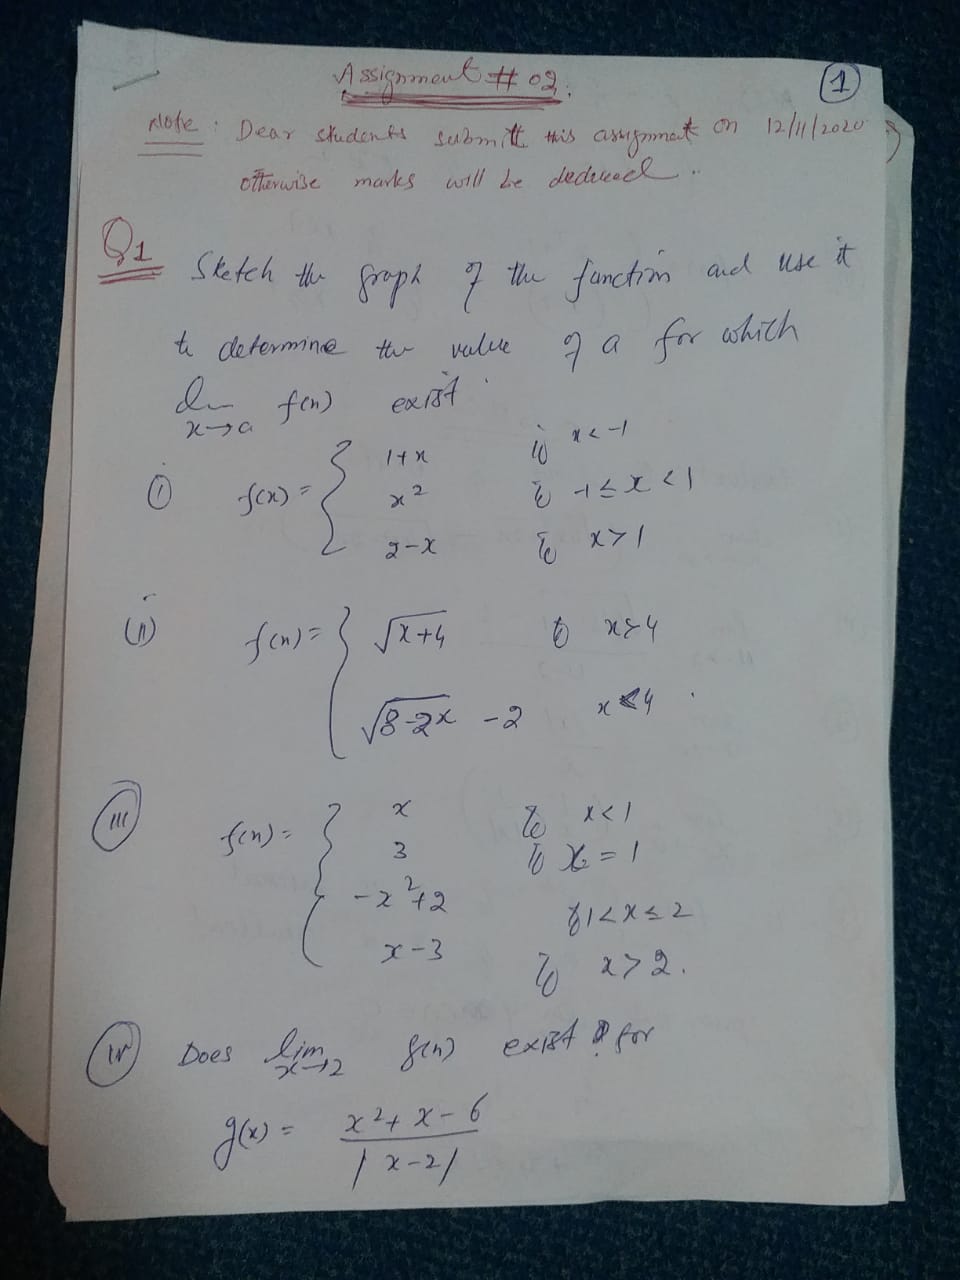 Assignment # 02.
1
Note : Dear students submitt this assignment on 12/11/2020
otherwise marks will be deduced ..
Q1 Sketch the graph of the function and use it
to determine the value of a for which
lim x→a f(n) exist.
(i) f(x) = { 1+x if x < -1
x² if -1 ≤ x < 1
2-x if x > 1
(ii) f(n) = { √x+4 if x > 4
√8-2x -2 x < 4 .
(iii) f(n) = { x if x < 1
3 if x = 1
-x²+2 if 1 < x ≤ 2
x-3 if x > 2.
(iv) Does lim x→2 f(n) exist ? for
g(x) = x²+x-6 / |x-2|